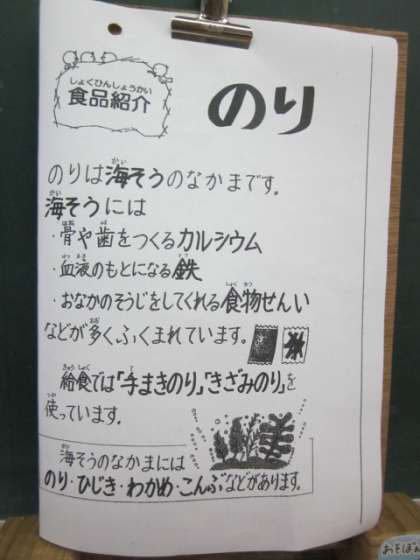 しょくひんしょうかい
食品紹介
のり
のりは海そうのなかまです。
海そうには
・骨や歯をつくるカルシウム
・血液のもとになる鉄
・おなかのそうじをしてくれる食物せんい
などが多くふくまれています。
給食では「手まきのり」「きざみのり」を
使っています。
海そうのなかまには
のり・ひじき・わかめ・こんぶなどがあります。